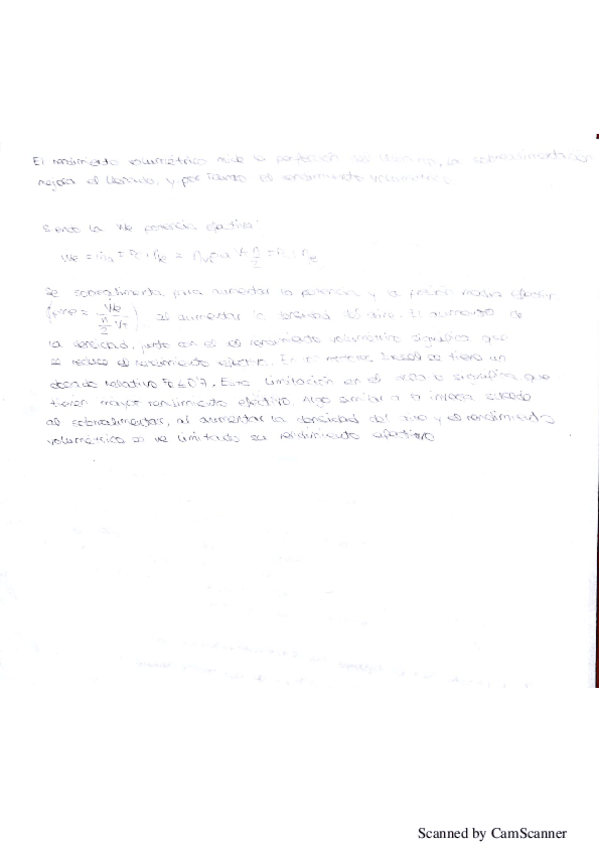 El rendimiento volumétrico mide la perfección del llenado, la sobrealimentación
mejora el llenado, y por tanto el rendimiento volumétrico.
Siendo la We potencia efectiva:
Se sobrealimenta para aumentar la potencia y la presión media efectiva
al aumentar la densidad del aire. El aumento de
la densidad, junto con el rendimiento volumétrico significa que
se reduce el rendimiento efectivo. En motores Diesel se tiene un
dosado relativo Fr≤0,7. Esta limitación en el significa que
tienen mayor rendimiento efectivo. Algo similar a la inversa sucede
al sobrealimentar, al aumentar la densidad del aire y el rendimiento
volumétrico se ve limitado su rendimiento efectivo
Scanned by CamScanner